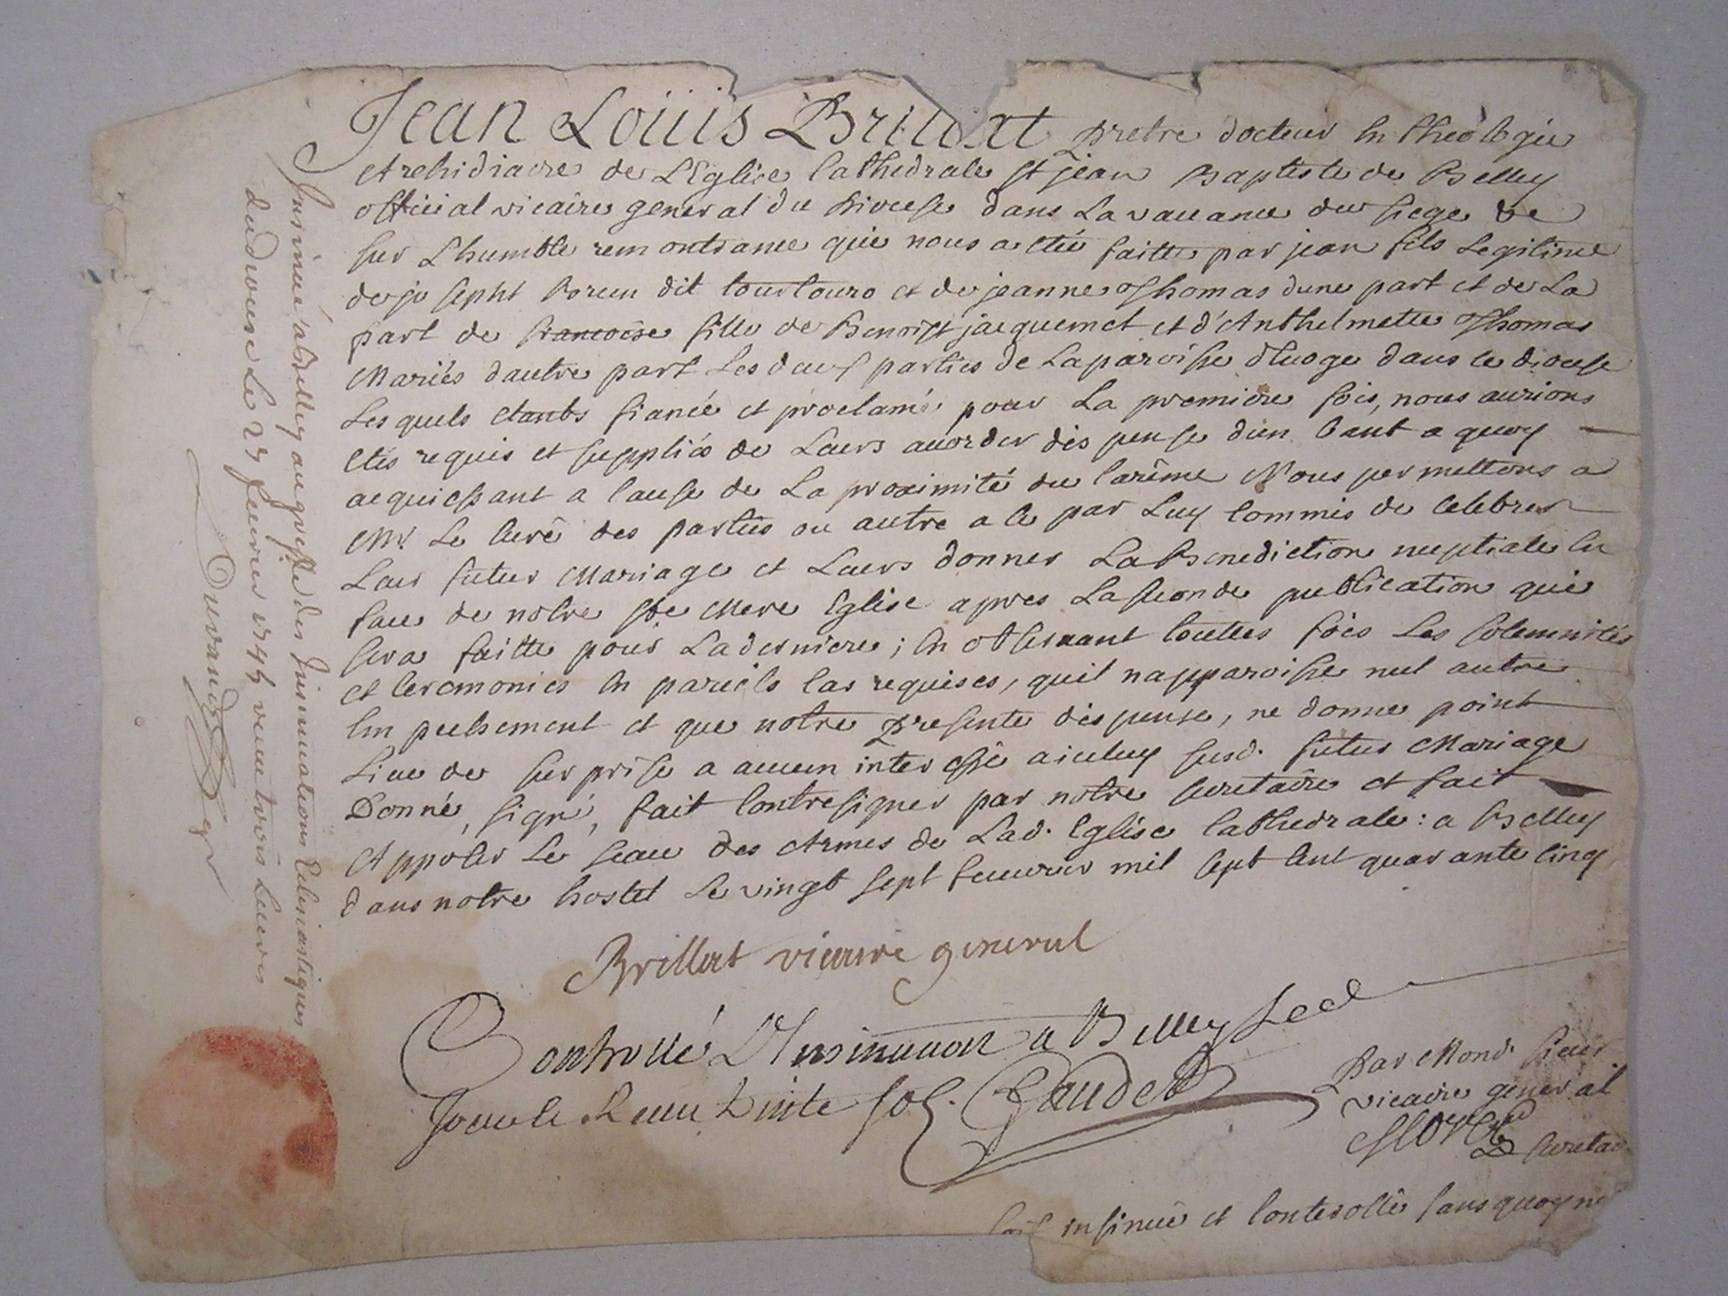 Jean Loüis Brillat pretre docteur en theologie
Archidiacre de LEglise Cathedrale St jean Baptiste de Belley
official vicaire general du Diocese dans La vacance du siege &c
sur Lhumble remontrance que nous a eté faitte par jean fils Legitime
de josepht dit tourtouro et de jeanne Thomas dune part et de La
part de francoise fille de Benoist jacquemet et d'Anthelmette Thomas
Mariés dautre part Les deux parties de La paroisse dluoge dans ce diocese
Lesquels etants fiancé et proclamé pour La premiere fois, nous aurions
etés requis et suppliés de Leurs accorder dispense dien bant a quoy
acquiessant a Cause de La proximité du Carême Nous permettons a
Mr. Le Curé des parties ou autre a ce par Luy Commis de Celebrer
Leur futur Mariage et Leurs donner La Benediction nuptiale En
face de notre Ste Mere Eglise apres La seconde publication qui
sera faitte pour La derniere; En observant touttes fois Les solemnités
et Ceremonies En pareils Cas requises, quil napparoisse nul autre
Empechement et que notre presente dispense, ne donne point
Lieu de surprise a aucun interessé a iceluy susd. futur Mariage
Donné, signé, fait Contresigner par notre secretaire et fait
Apposer Le sceau des Armes de Lad. Eglise Cathedrale: a Belley
dans notre hostel Le vingt sept feuvrier mil sept Cent quarante Cinq
Brillat vicaire general
Controllé & Insinuation a Belley Led
Jour Receu trente sols. Gaudet
Par Mond. sieur
vicaire general
secretai
soit insinué et Controllé sans quoy n
Insinué a Belley au greffe des Insinuations Eclesiastiques
du diocese Le 27 feuvrier 1745 receu trois Livres